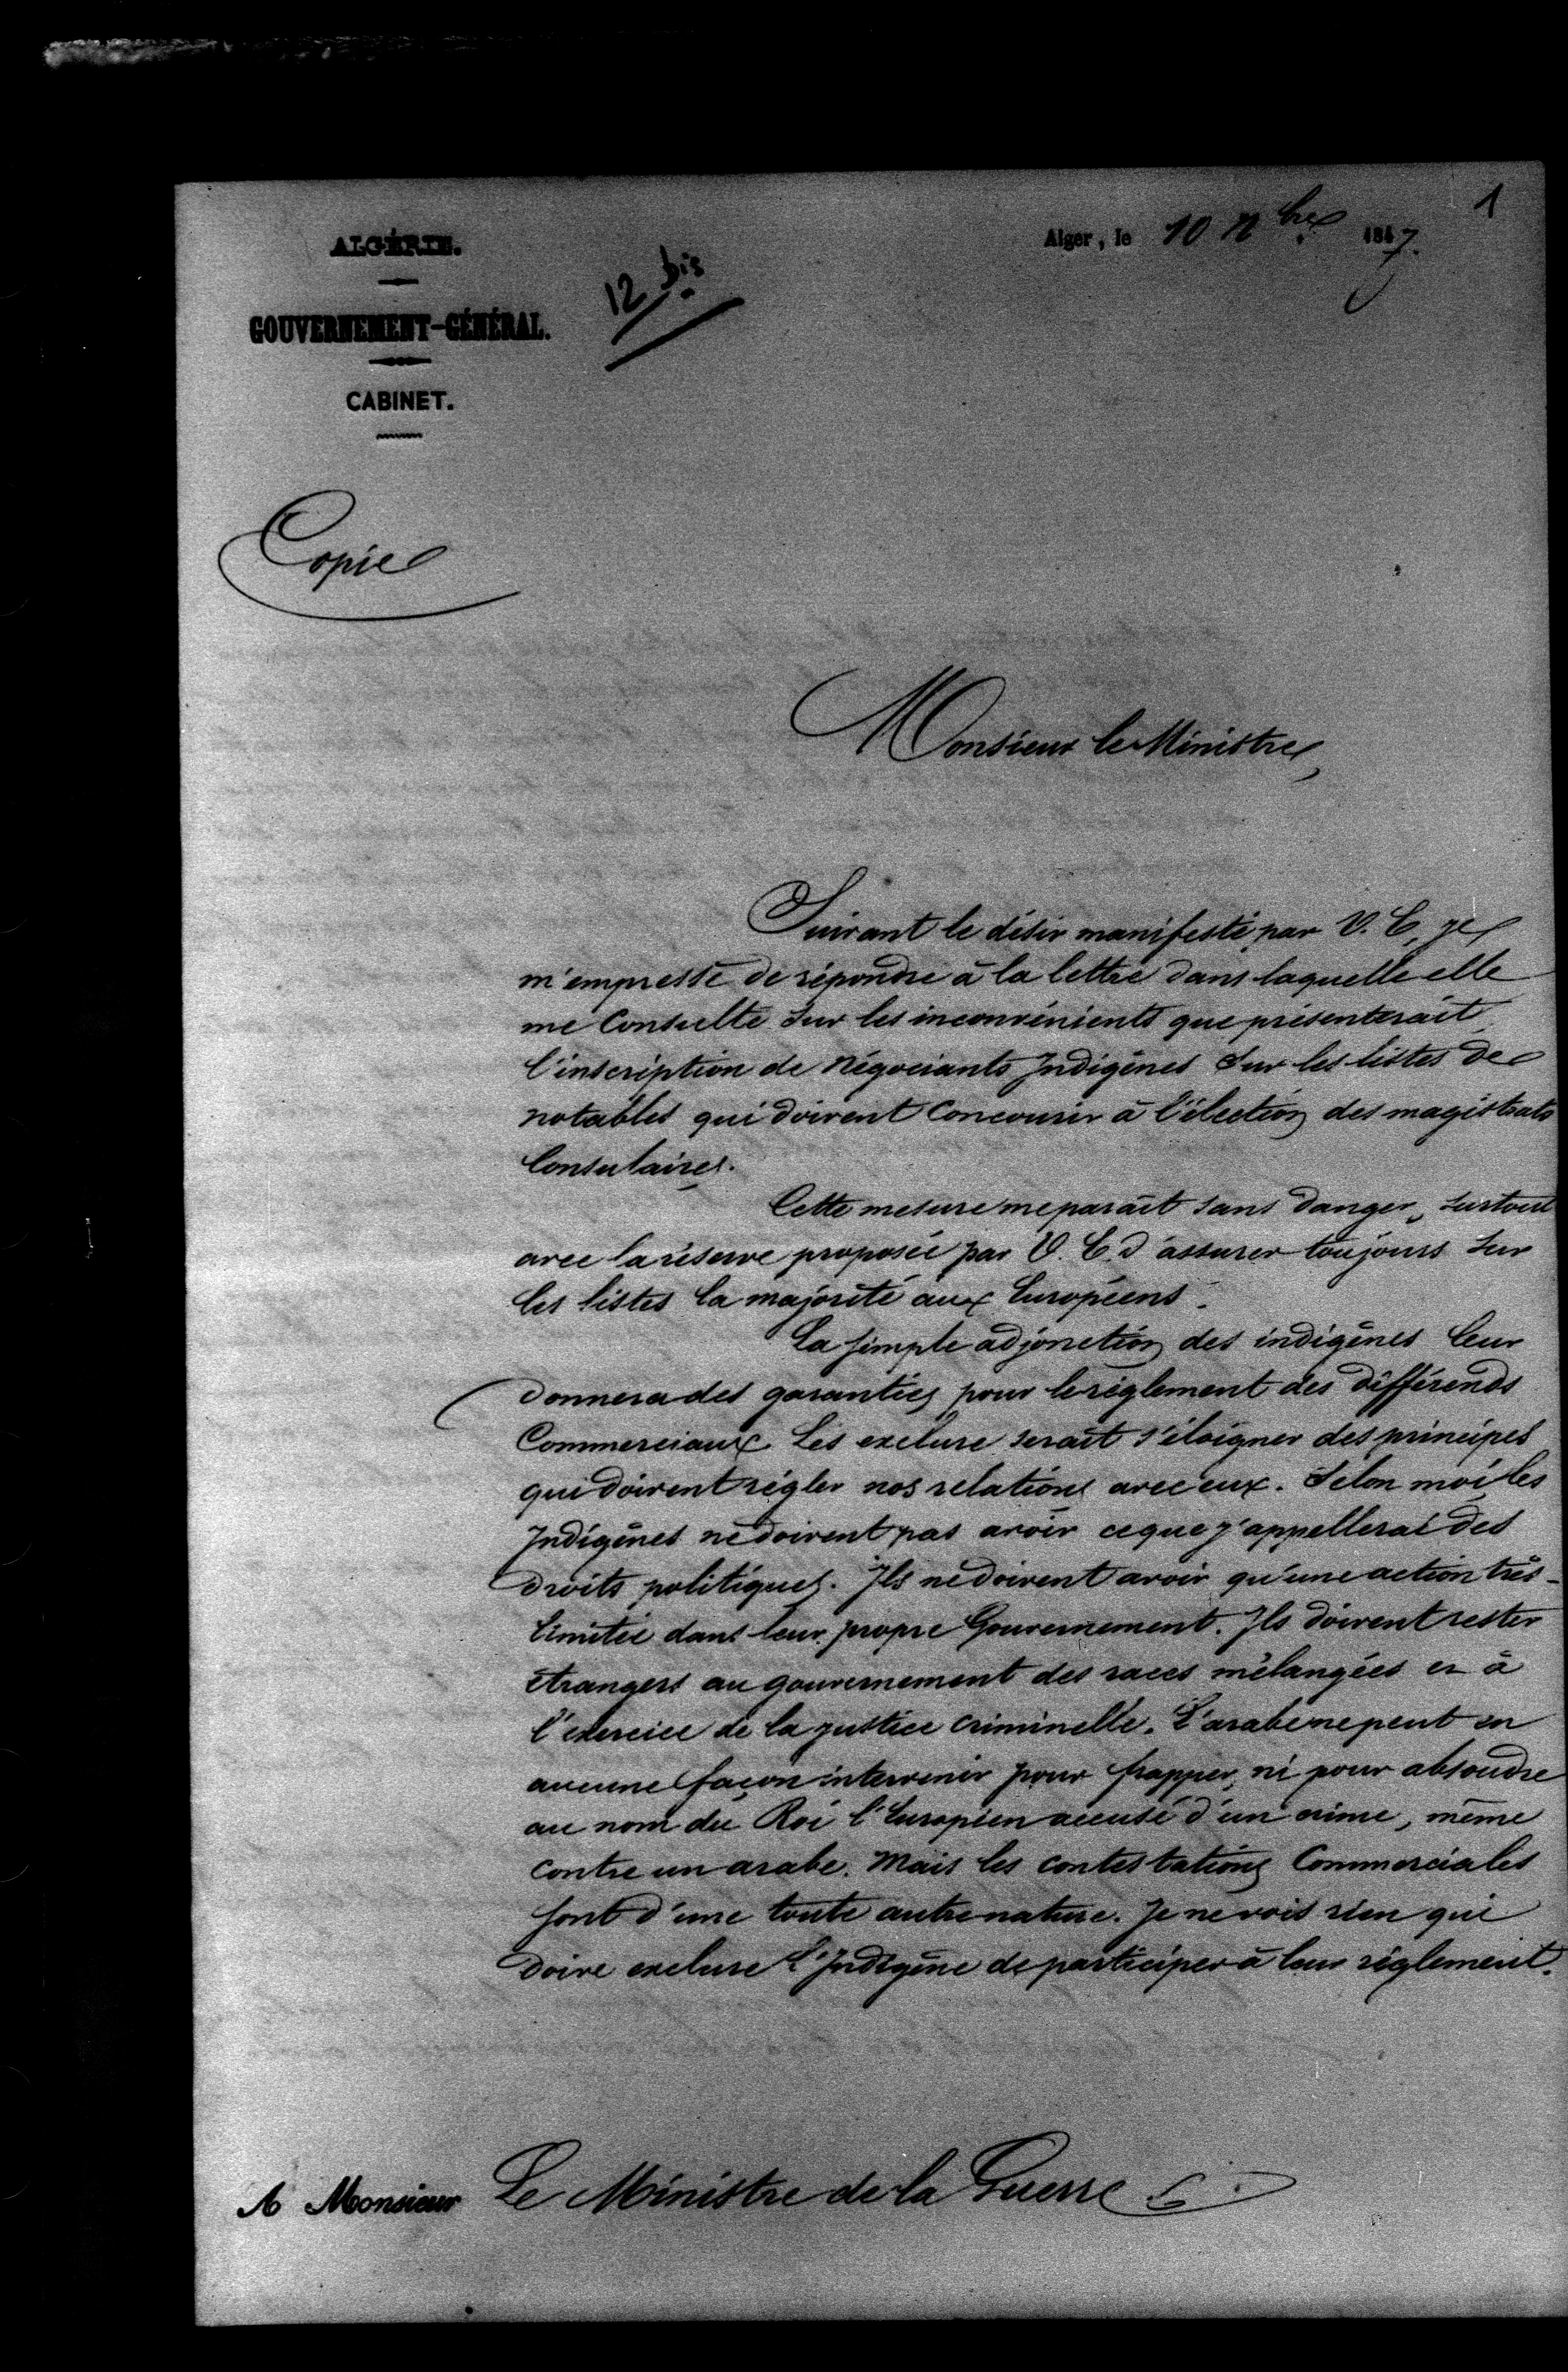 1
Alger, le 10 9bre 1847.
ALGÉRIE.
GOUVERNEMENT-GÉNÉRAL.
CABINET.
12 bis
Copie
Monsieur le Ministre,
Suivant le désir manifesté par V. E, je
m'empresse de répondre à la lettre dans laquelle elle
me Consulte sur les inconvénients que présenterait
l'inscription de Négociants Indigènes sur les listes de
notables qui doivent Concourir à l'élection des magistrats
Consulaires.
Cette mesure me paraît sans danger, surtout
avec la réserve proposée par V. E. d'assurer toujours sur
les listes la majorité aux Européens.
La simple adjonction des indigènes leur
donnera des garanties pour le règlement des différends
Commerciaux. Les exclure serait s'éloigner des principes
qui doivent régler nos relations avec eux. Selon moi les
Indigènes ne doivent pas avoir ce que j'appellerai des
droits politiques. Ils ne doivent avoir qu'une action très-
limitée dans leur propre Gouvernement. Ils doivent rester
étrangers au gouvernement des races mélangées et à
l'exercice de la justice criminelle. L'arabe ne peut en
aucune façon intervenir pour frapper, ni pour absoudre
au nom du Roi l'Européen accusé d'un crime, même
contre un arabe. Mais les contestations Commerciales
sont d'une toute autre nature. Je ne vois rien qui
doive exclure l'Indigène de participer à leur règlement.
A Monsieur Le Ministre de la Guerre